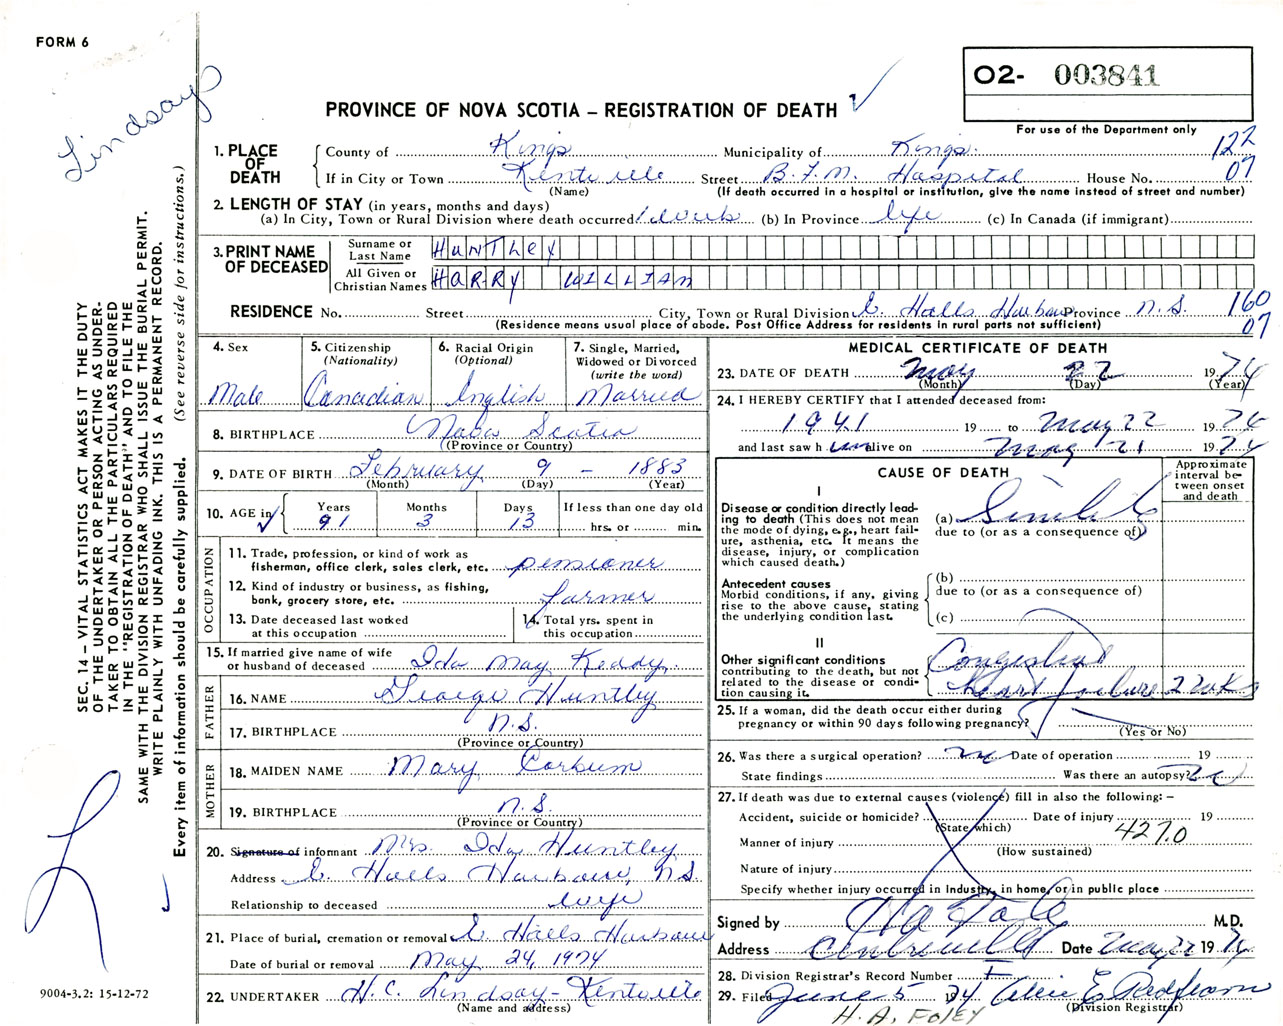 FORM 6
Lindsay
O2- 003841
PROVINCE OF NOVA SCOTIA – REGISTRATION OF DEATH ✓
For use of the Department only
1. PLACE OF DEATH
County of Kings Municipality of Kings. 122
If in City or Town Kentville Street B.F.M. Hospital House No. 07
(Name) (If death occurred in a hospital or institution, give the name instead of street and number)
2. LENGTH OF STAY (in years, months and days)
(a) In City, Town or Rural Division where death occurred 1 week (b) In Province life (c) In Canada (if immigrant)
3. PRINT NAME OF DECEASED
Surname or Last Name HUNTLEY
All Given or Christian Names HARRY WILLIAM
RESIDENCE No. Street City, Town or Rural Division C. Halls Harbour Province N.S. 160
(Residence means usual place of abode. Post Office Address for residents in rural parts not sufficient) 07
4. Sex
Male
5. Citizenship (Nationality)
Canadian
6. Racial Origin (Optional)
English
7. Single, Married, Widowed or Divorced (write the word)
Married
8. BIRTHPLACE Nova Scotia
(Province or Country)
9. DATE OF BIRTH February 9 – 1883
(Month) (Day) (Year)
10. AGE in ✓ Years Months Days If less than one day old
91 3 13 hrs. or min.
OCCUPATION
11. Trade, profession, or kind of work as
fisherman, office clerk, sales clerk, etc. pensioner
12. Kind of industry or business, as fishing,
bank, grocery store, etc. farmer
13. Date deceased last worked
at this occupation
14. Total yrs. spent in
this occupation
15. If married give name of wife
or husband of deceased Ida May Keddy.
FATHER
16. NAME George Huntley
17. BIRTHPLACE N.S.
(Province or Country)
MOTHER
18. MAIDEN NAME Mary Corkum
19. BIRTHPLACE N.S.
(Province or Country)
20. Signature of informant Mrs. Ida Huntley
Address C. Halls Harbour, N.S.
Relationship to deceased wife
21. Place of burial, cremation or removal C. Halls Harbour
Date of burial or removal May 24, 1974
22. UNDERTAKER H.C. Lindsay – Kentville
(Name and address)
MEDICAL CERTIFICATE OF DEATH
23. DATE OF DEATH May 22 1974
(Month) (Day) (Year)
24. I HEREBY CERTIFY that I attended deceased from:
1941 19 to May 22 1974
and last saw h im alive on May 21 1974
CAUSE OF DEATH
Approximate interval between onset and death
I
Disease or condition directly lead-
ing to death (This does not mean
the mode of dying, e.g., heart fail-
ure, asthenia, etc. It means the
disease, injury, or complication
which caused death.)
(a) Senility
due to (or as a consequence of)
Antecedent causes
Morbid conditions, if any, giving
rise to the above cause, stating
the underlying condition last.
(b)
due to (or as a consequence of)
(c)
II
Other significant conditions
contributing to the death, but not
related to the disease or condi-
tion causing it.
Congestive
heart failure 2 wks
25. If a woman, did the death occur either during
pregnancy or within 90 days following pregnancy?
(Yes or No)
26. Was there a surgical operation? no Date of operation 19
State findings Was there an autopsy? no
27. If death was due to external causes (violence) fill in also the following: –
Accident, suicide or homicide? Date of injury 19
(State which) 427.0
Manner of injury
(How sustained)
Nature of injury
Specify whether injury occurred in Industry, in home, or in public place
Signed by M.D.
Address Centreville Date May 22 1974
28. Division Registrar's Record Number
29. Filed June 5 1974 E. Redfearn
(Division Registrar)
H.A. FOLEY
SEC. 14 – VITAL STATISTICS ACT MAKES IT THE DUTY
OF THE UNDERTAKER OR PERSON ACTING AS UNDER-
TAKER TO OBTAIN ALL THE PARTICULARS REQUIRED
IN THE "REGISTRATION OF DEATH" AND TO FILE THE
SAME WITH THE DIVISION REGISTRAR WHO SHALL ISSUE THE BURIAL PERMIT.
WRITE PLAINLY WITH UNFADING INK. THIS IS A PERMANENT RECORD.
Every item of information should be carefully supplied. (See reverse side for instructions.)
L
9004-3.2: 15-12-72